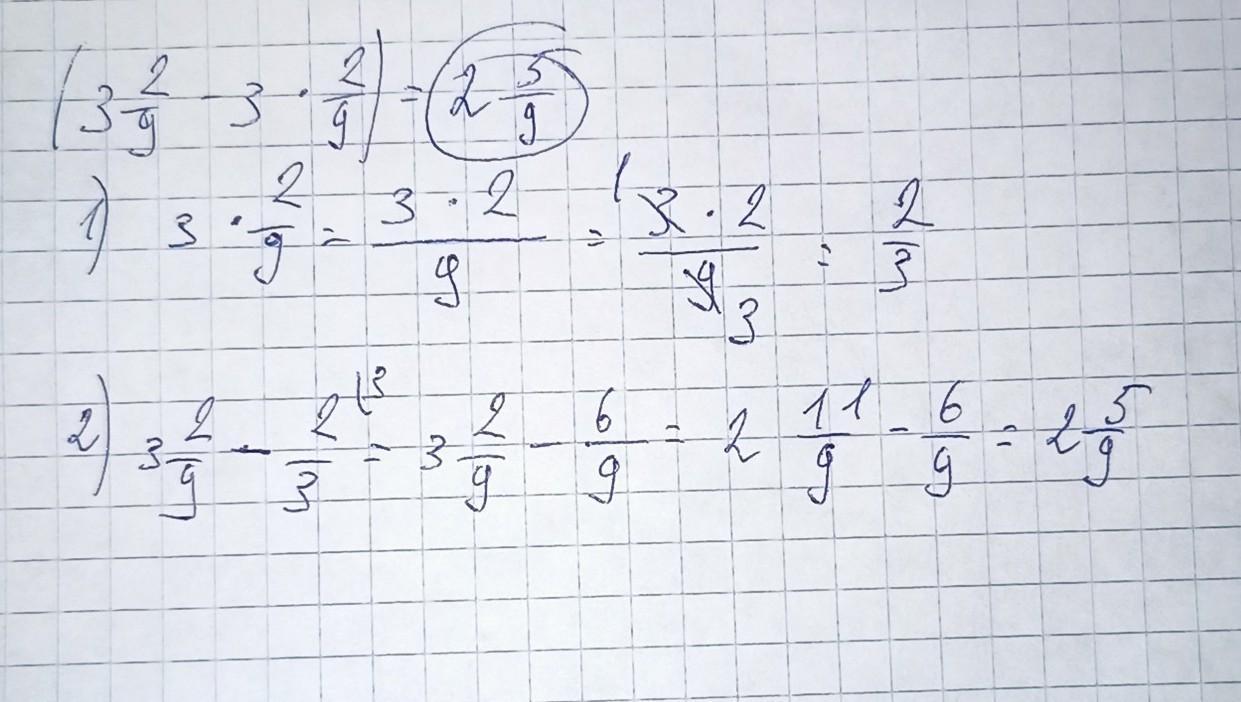 (3 2/9 - 3 · 2/9) = 2 5/9
1) 3 · 2/9 = (3 · 2)/9 = (3̸ 1 · 2)/(9̸ 3) = 2/3
2) 3 2/9 - 2/3 (3 = 3 2/9 - 6/9 = 2 11/9 - 6/9 = 2 5/9